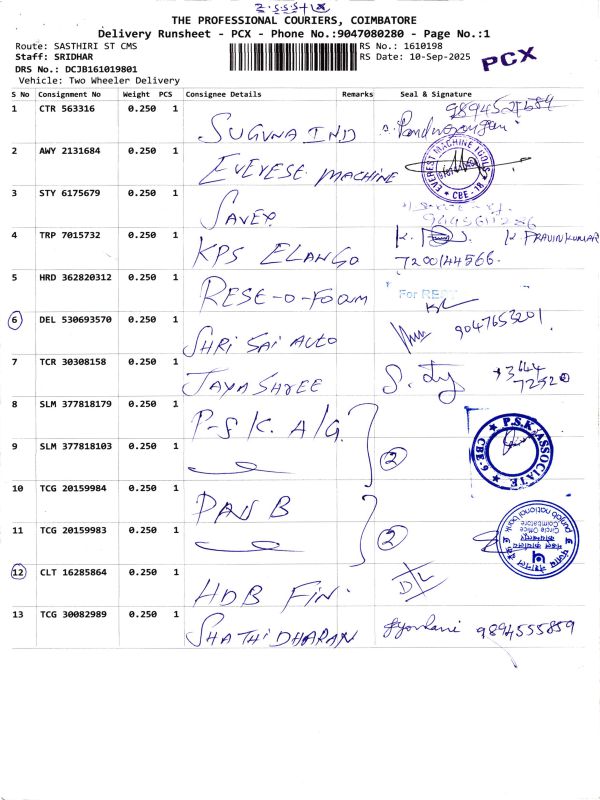 THE PROFESSIONAL COURIERS, COIMBATORE
Delivery Runsheet - PCX - Phone No.:9047080280 - Page No.:1
Route: SASTHIRI ST CMS RS No.: 1610198
Staff: SRIDHAR RS Date: 10-Sep-2025
PCX
DRS No.: DCJB161019801
Vehicle: Two Wheeler Delivery
S No Consignment No Weight PCS Consignee Details Remarks Seal & Signature
1 CTR 563316 0.250 1 SUGUNA IND
2 AWY 2131684 0.250 1 EVEREST MACHINE EVEREST MACHINE TOOLS CBE - 18
3 STY 6175679 0.250 1 SAVEX
4 TRP 7015732 0.250 1 KPS ELANGO K. PRAVIN KUMAR
7200144566.
5 HRD 362820312 0.250 1 RESE-O-FOAM For
6 DEL 530693570 0.250 1 SHRI SAI AUTO 9047653201.
7 TCR 30308158 0.250 1 JAYA SHREE
8 SLM 377818179 0.250 1 P-S K. A/G.
9 SLM 377818103 0.250 1 2 P.S.K. ASSOCIATE CBE-6
10 TCG 20159984 0.250 1 PAN B
11 TCG 20159983 0.250 1 2 punjab national bank
Circle Office
Coimbatore
12 CLT 16285864 0.250 1 HDB FIN. D/L
13 TCG 30082989 0.250 1 SHATHIDHARAN 9894555859